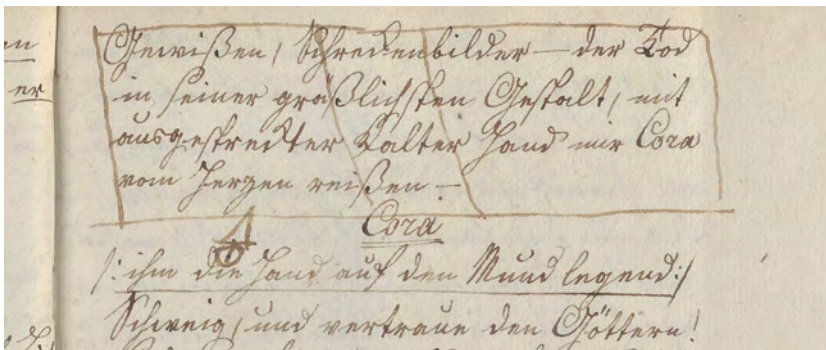 Gewißen, Schreckenbilder — der Tod
in seiner gräßlichsten Gestalt, mit
ausgestreckter kalter Hand mir Cora
vom Herzen reißen —
Cora
/: ihm die Hand auf den Mund legend :/
Schweig, und vertraue den Göttern!